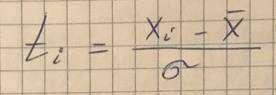 t_i = \frac{x_i - \bar{x}}{\sigma}